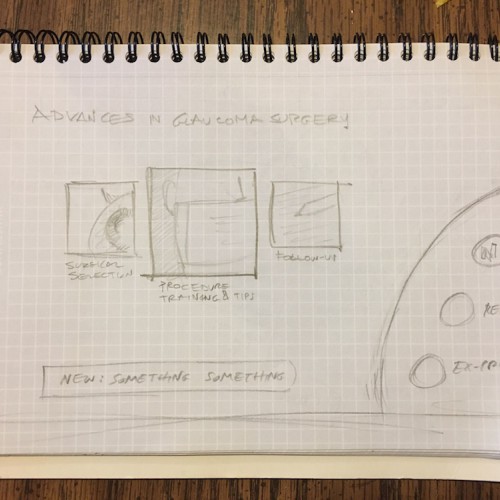 ADVANCES IN GLAUCOMA SURGERY
SURGICAL
SELECTION
PROCEDURE
TRAINING & TIPS
FOLLOW-UP
NEW: SOMETHING SOMETHING